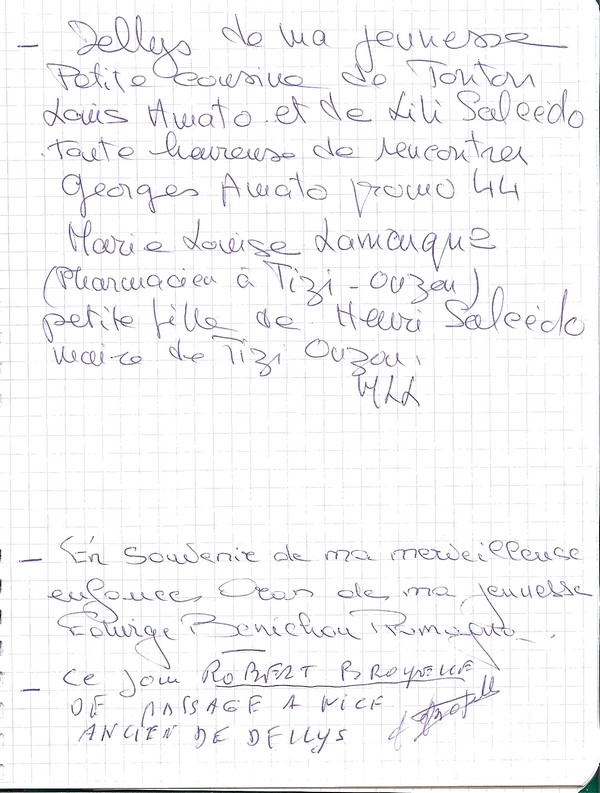 - Dellys de ma jeunesse
Petite cousine de Tonton
Louis Amato et de Lili Salcédo
toute heureuse de rencontrer
Georges Amato promo 44
Marie Louise Lamarque
(Pharmacien à Tizi-Ouzou)
petite fille de Henri Salcédo
maire de Tizi Ouzou.
MLL
- En souvenir de ma merveilleuse
enfance, Oran de ma jeunesse
Edwige Benichou
- Ce jour ROBERT
DE PASSAGE A NICE
ANCIEN DE DELLYS